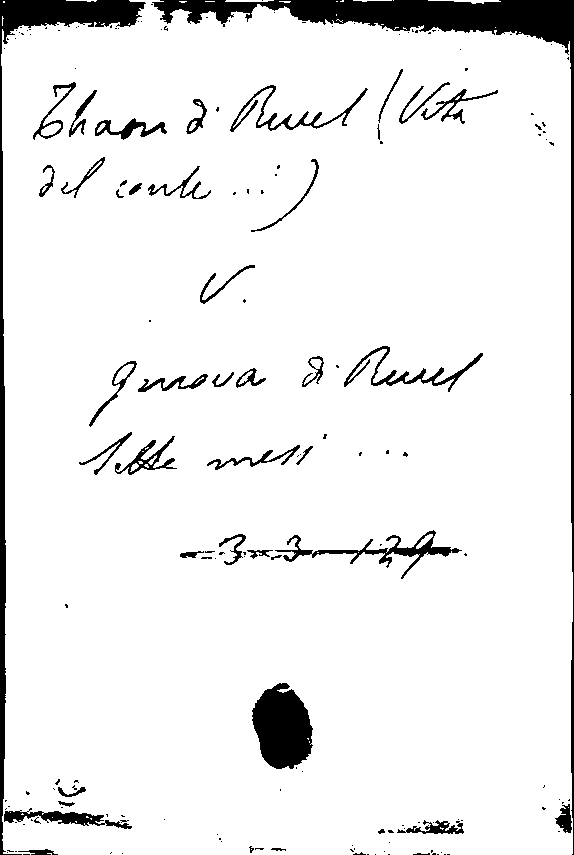 Thaon di Revel (Vita
del conte ...)
V.
Genova di Revel
Sette mesi ...
3. 3. 129.